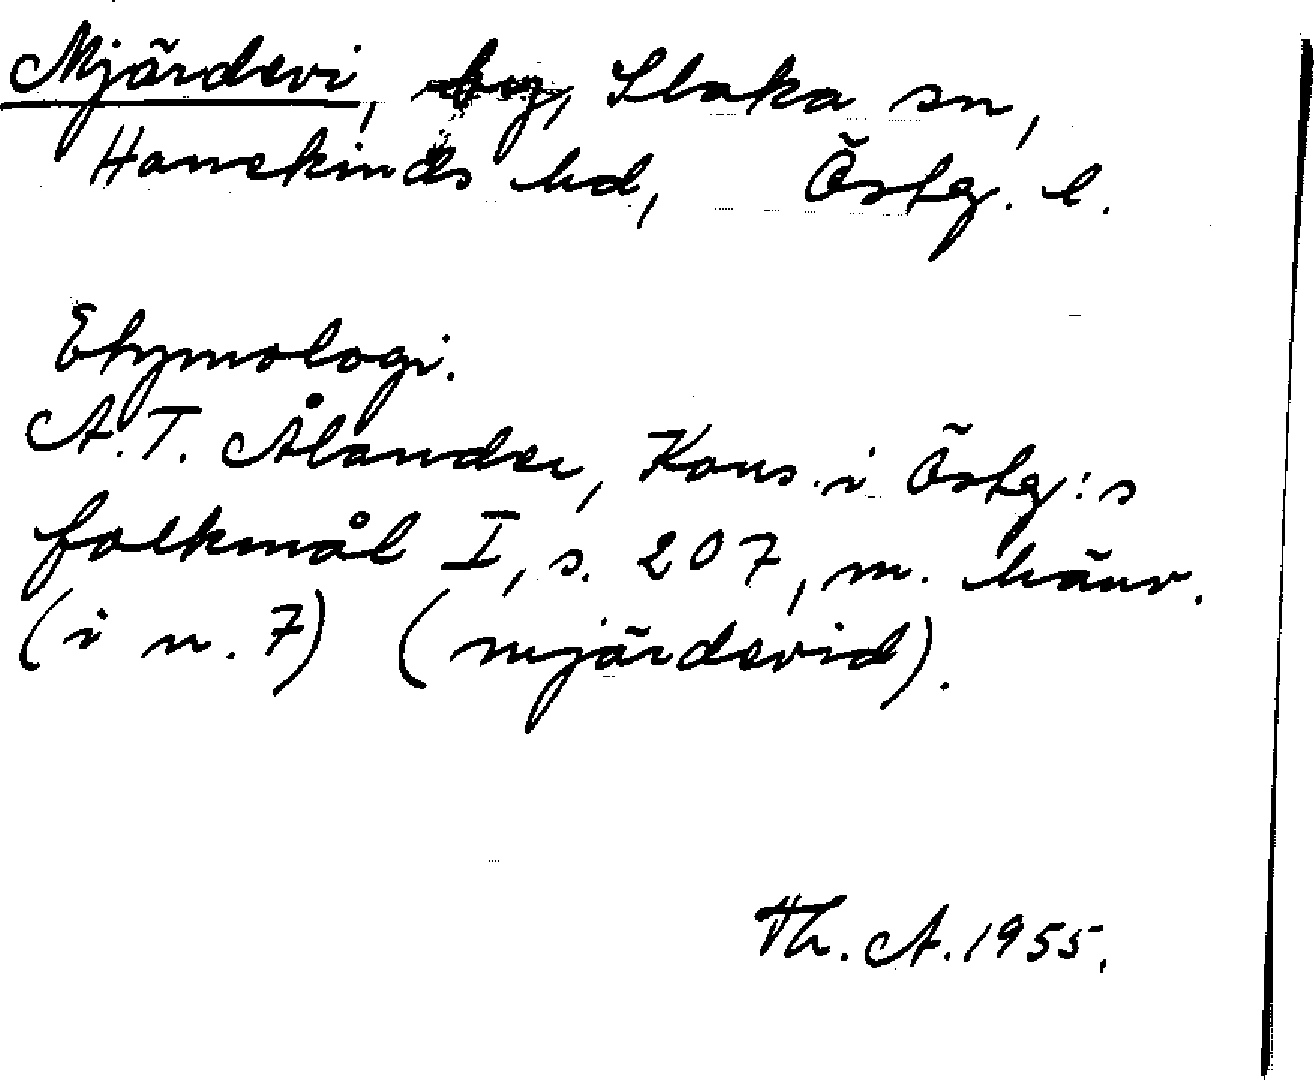 Mjärdevi, by, Slaka sn,
Hanekinds hd, Östg. l.
Etymologi.
A.T. Ålander, Kons. i Östg:s
folkmål I, s. 207, m. hänv.
(i n. 7) (mjärdevid).
Th. A. 1955.